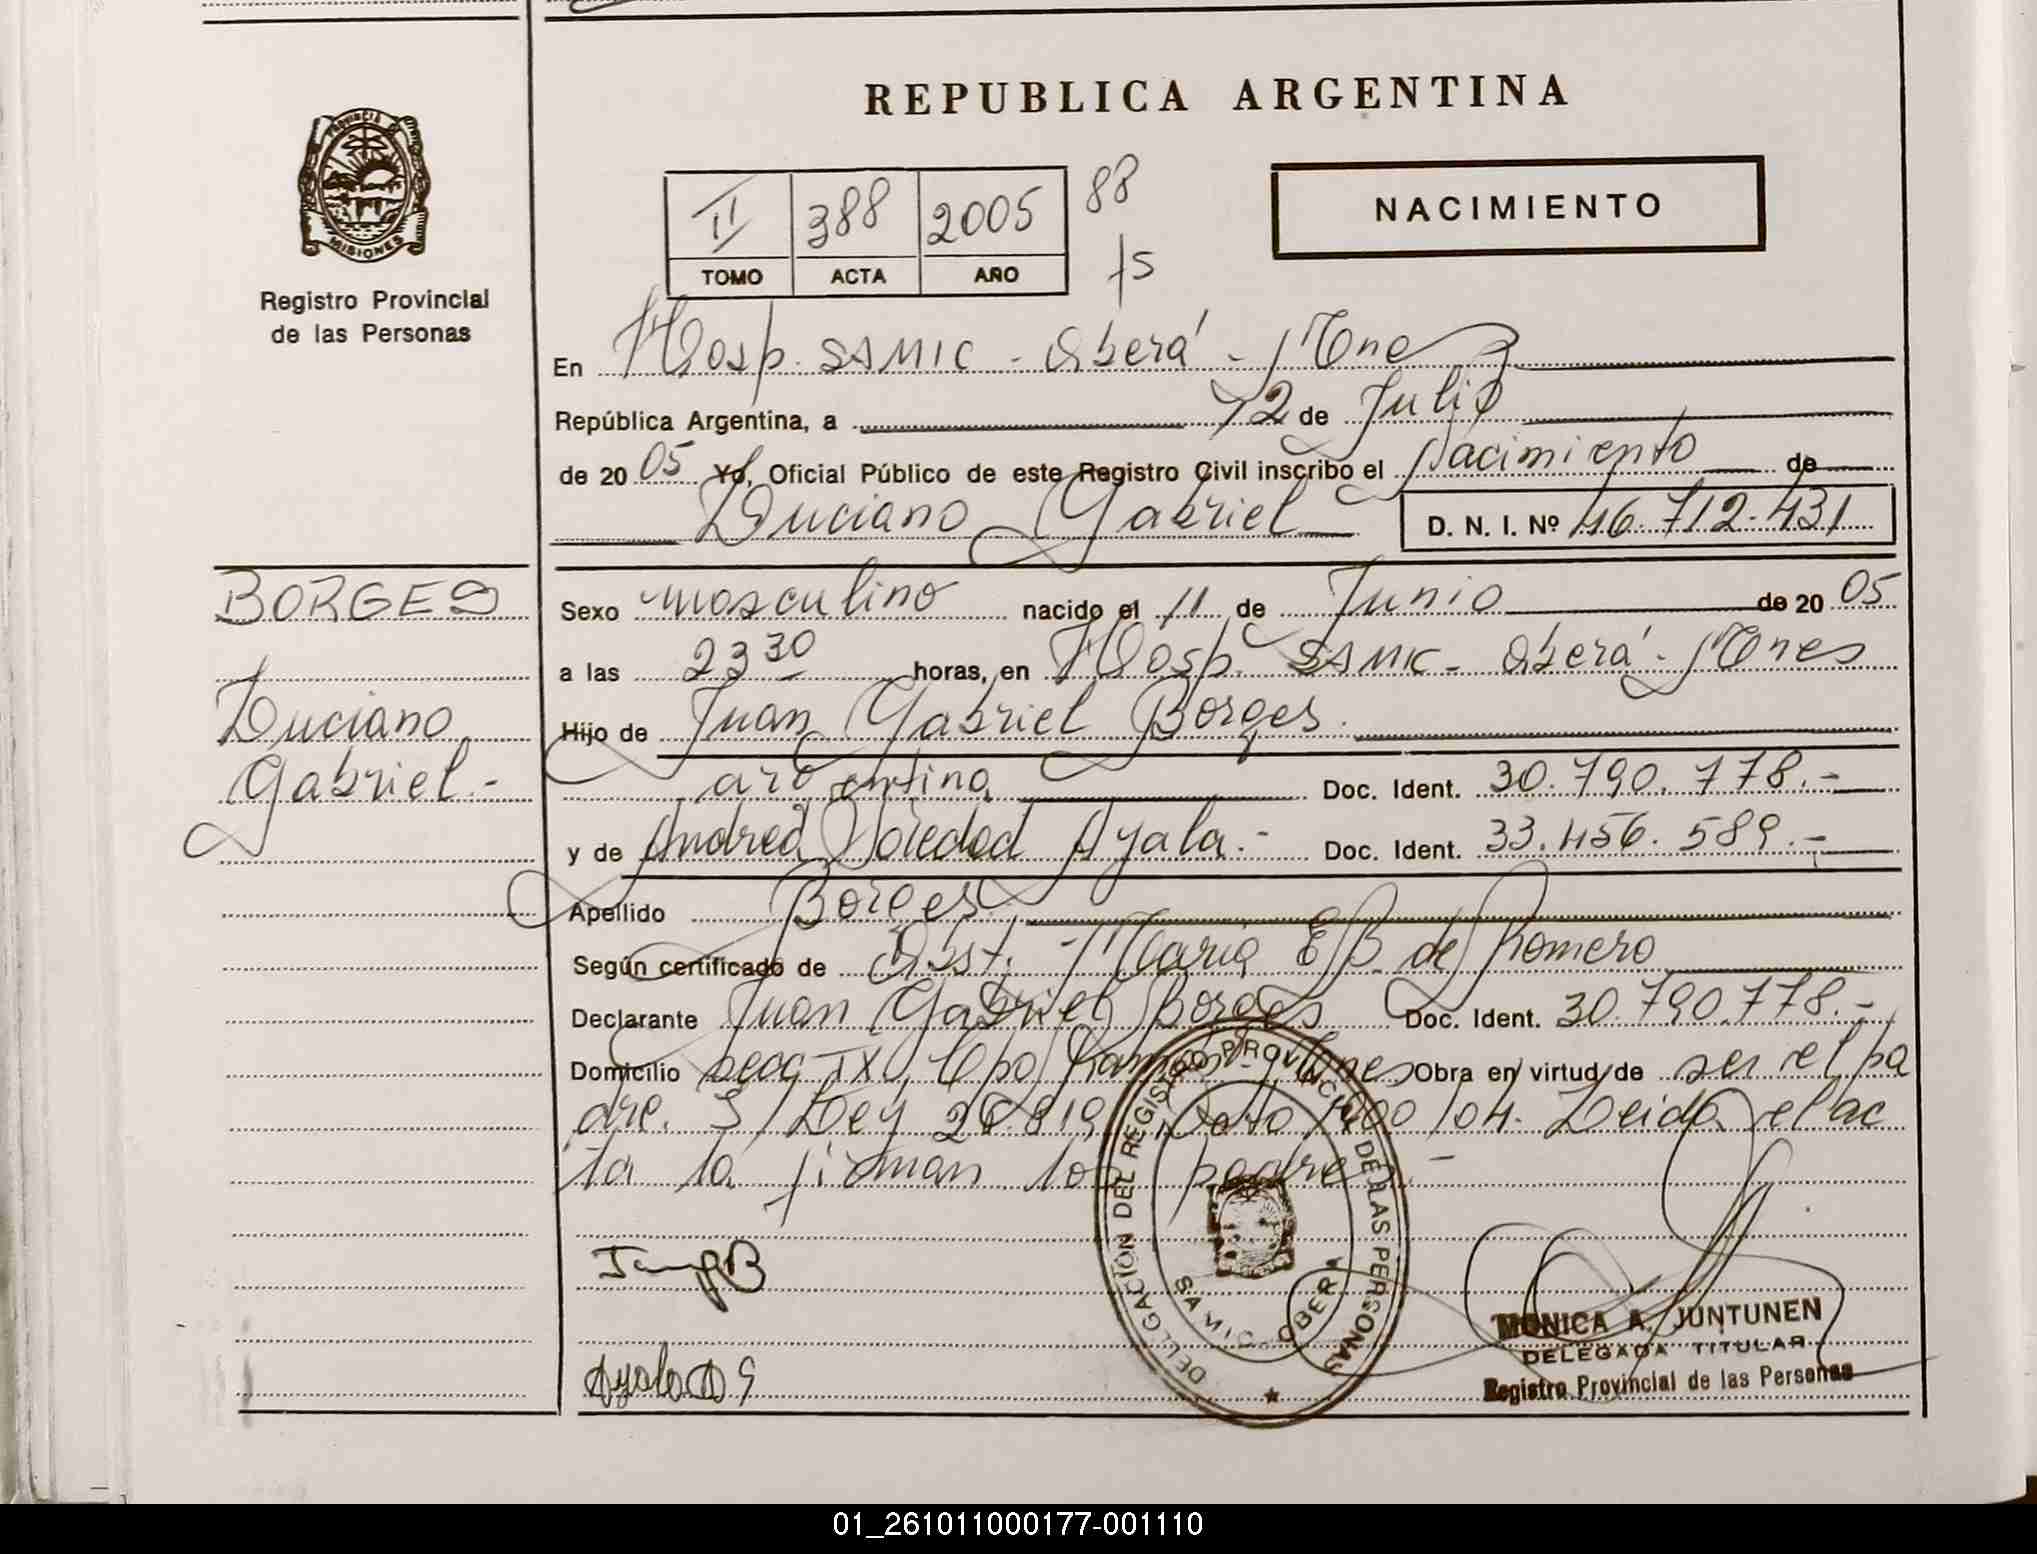 REPUBLICA ARGENTINA
PROVINCIA DE
MISIONES
Registro Provincial
de las Personas
II 388 2005 88
TOMO ACTA AÑO /5
NACIMIENTO
En Hosp. SAMIC - Oberá - Mnes
República Argentina, a 12 de Julio
de 20 05 Yo, Oficial Público de este Registro Civil inscribo el Nacimiento de
Luciano Gabriel D. N. I. Nº 46.712.431
BORGES
Luciano
Gabriel.-
Sexo masculino nacido el 11 de Junio de 20 05
a las 23 30 horas, en Hosp. SAMIC - Oberá - Mnes
Hijo de Juan Gabriel Borges.
argentina Doc. Ident. 30.790.778.-
y de Andrea Soledad Ayala.- Doc. Ident. 33.456.589.-
Apellido Borges
Según certificado de Obst. María E B. de Romero
Declarante Juan Gabriel Borges Doc. Ident. 30.790.778.-
Domicilio secc IX Cpo Ramón - Mnes Obra en virtud de ser el pa
dre. S/Ley 26.819 Dcto 1400/04. Leida el ac
ta la firman los padres.-
Juan g B
Ayala A S
DELEGACIÓN DEL REGISTRO PROVINCIAL DE LAS PERSONAS
SAMIC - OBERA
MONICA A. JUNTUNEN
DELEGADA TITULAR
Registro Provincial de las Personas
01_261011000177-001110